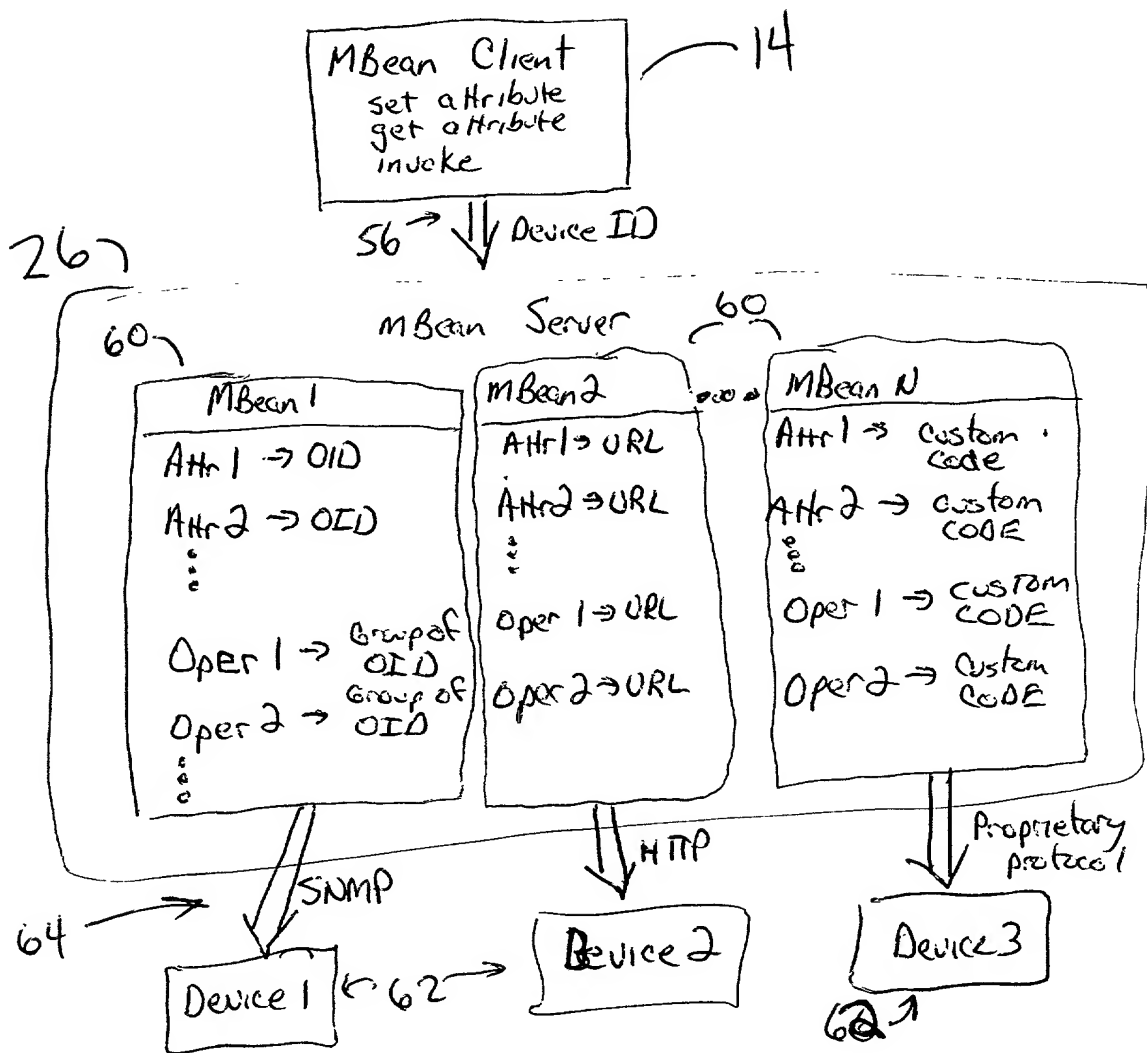 MBean Client
set attribute
get attribute
invoke
14
56
Device ID
26
MBean Server
60
60
MBean 1
Attr 1 → OID
Attr 2 → OID
Oper 1 → Group of
OID
Oper 2 → Group of
OID
MBean 2
Attr 1 → URL
Attr 2 → URL
Oper 1 → URL
Oper 2 → URL
MBean N
Attr 1 → custom
code
Attr 2 → custom
CODE
Oper 1 → CUSTOM
CODE
Oper 2 → Custom
CODE
SNMP
HTTP
Proprietary
protocol
64
Device 1
62
Device 2
Device 3
62